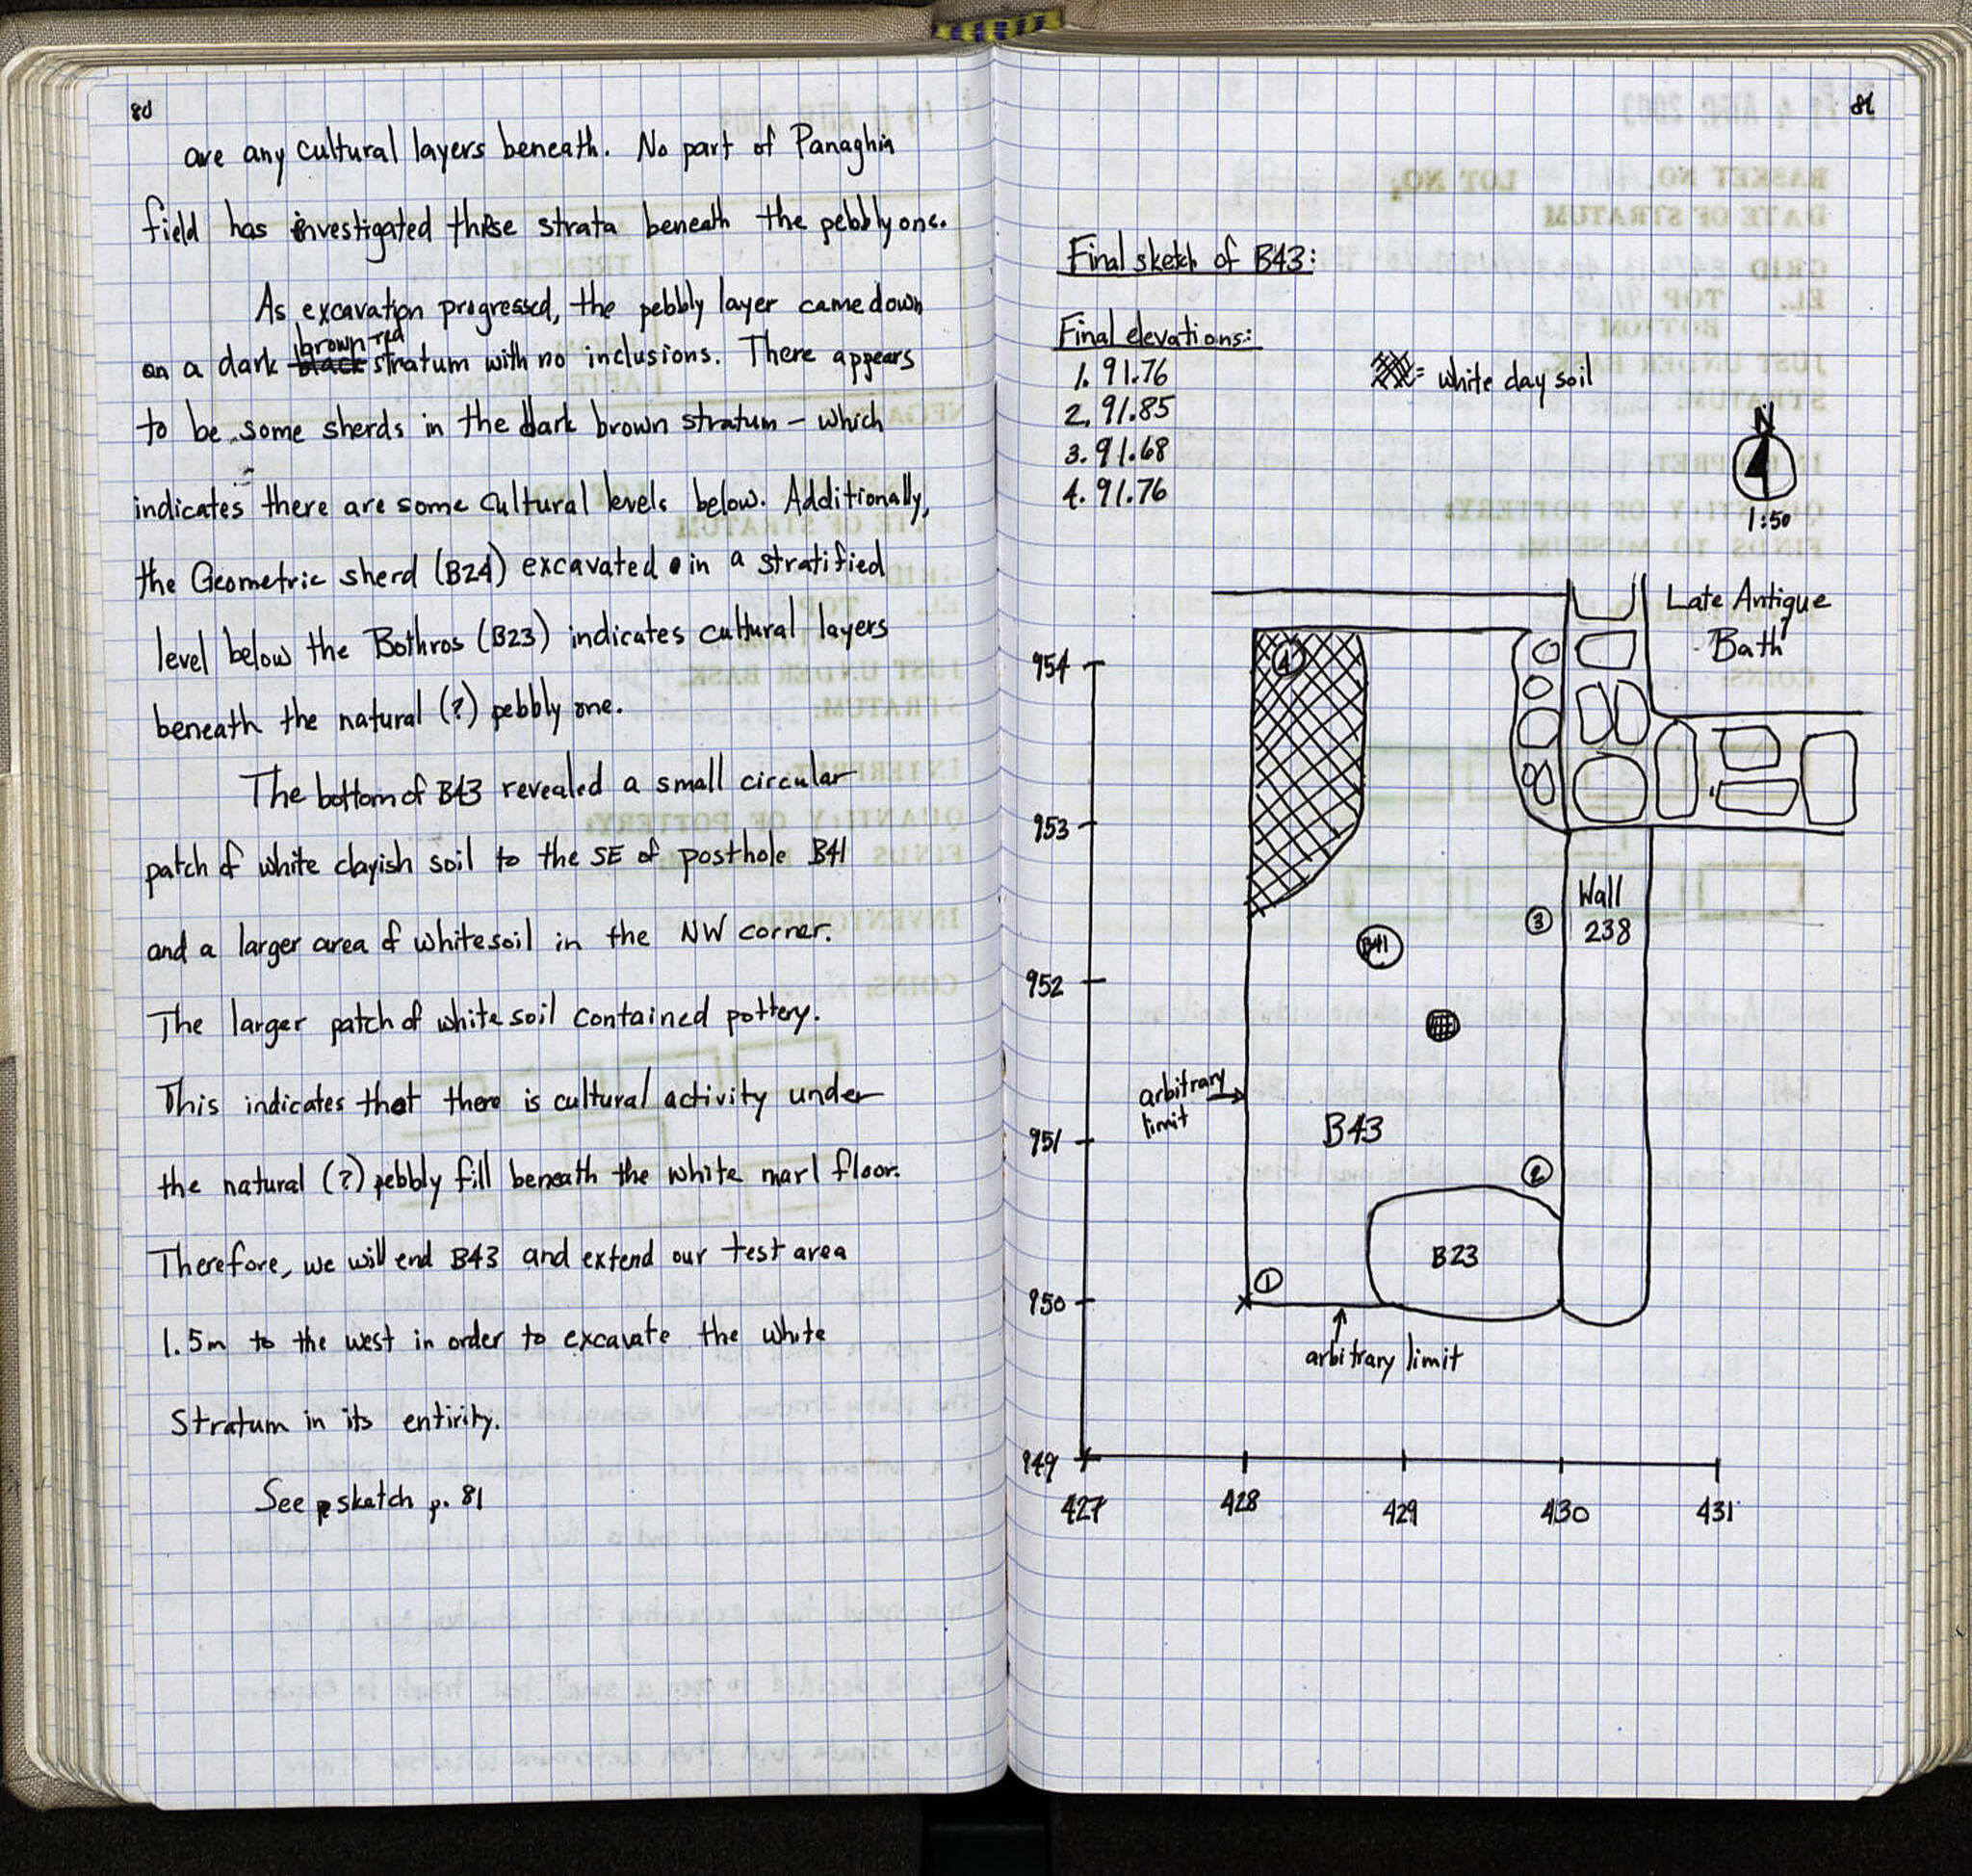 80
are any cultural layers beneath. No part of Panaghia
field has investigated these strata beneath the pebbly one.
As excavation progressed, the pebbly layer came down
brown red
on a dark black stratum with no inclusions. There appears
to be some sherds in the dark brown stratum - which
indicates there are some cultural levels below. Additionally,
the Geometric sherd (B24) excavated in a stratified
level below the Bothros (B23) indicates cultural layers
beneath the natural (?) pebbly one.
The bottom of B43 revealed a small circular
patch of white clayish soil to the SE of posthole B41
and a larger area of white soil in the NW corner.
The larger patch of white soil contained pottery.
This indicates that there is cultural activity under
the natural (?) pebbly fill beneath the white marl floor.
Therefore, we will end B43 and extend our test area
1.5m to the west in order to excavate the white
Stratum in its entirity.
See sketch p. 81
81
Final sketch of B43:
Final elevations:
1. 91.76
2. 91.85
3. 91.68
4. 91.76
= white clay soil
N
1:50
Late Antique
Bath
4
954
953
952
951
950
949
Wall
238
3
B41
arbitrary
limit
B43
2
B23
1
arbitrary limit
427 428 429 430 431